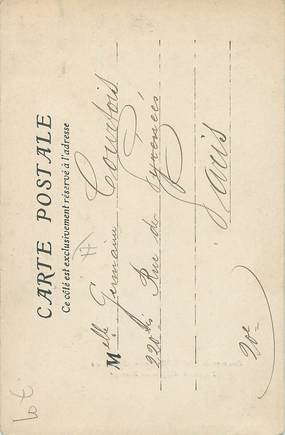 CARTE POSTALE
Ce côté est exclusivement réservé à l'adresse
Melle Germaine Courtois
220 bis Rue de Pyrenées
Paris
20e